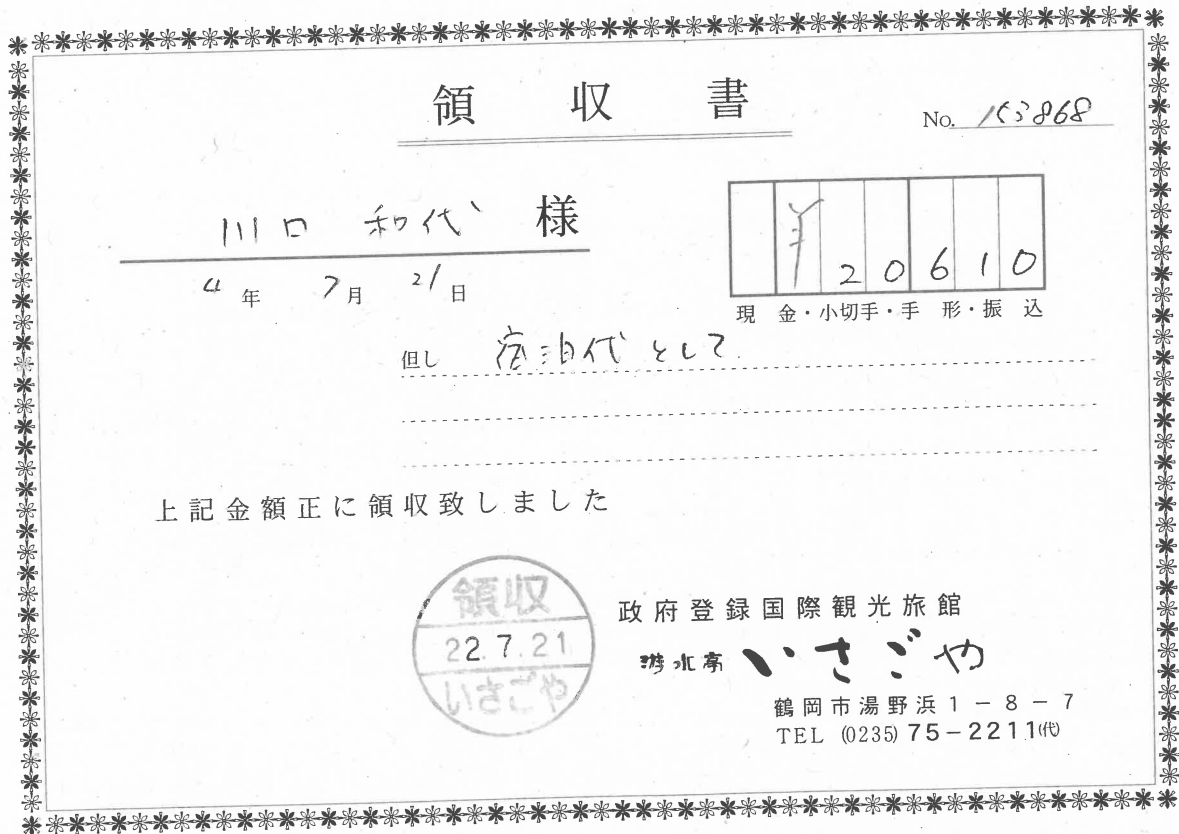 領収書
No. 153868
川口 和代 様
4年 7月 21日
¥20610
現金・小切手・手形・振込
但し 宿泊代として
上記金額正に領収致しました
領収
22.7.21
いさごや
政府登録国際観光旅館
游水亭 いさごや
鶴岡市湯野浜1-8-7
TEL (0235) 75-2211㈹